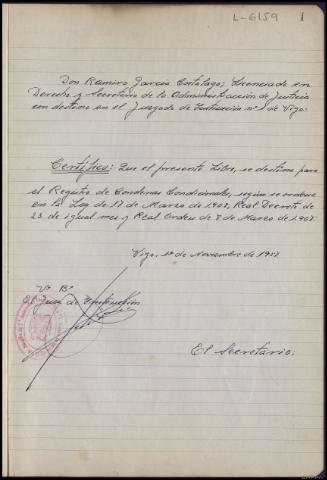 L-6159
1
Don Ramiro García Licenciado en
Derecho y Secretario de la Administración de Justicia
con destino en el Juzgado de Instrucción nº 1 de Vigo.
Certifico: Que el presente Libro, se destina para
el Registro de Condenas Condicionales, según se ordena
en la Ley de 17 de Marzo de 1908, Real Decreto de
23 de igual mes y Real Orden de 7 de Marzo de
Vigo, 1º de Noviembre de
Vº Bº
El Juez de Instrucción
El Secretario: